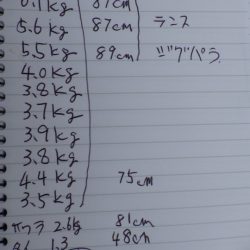 87cm
5.6kg 87cm ラニス
5.5kg 89cm ジグパラ
4.0kg
3.8kg
3.7kg
3.9kg
3.8kg
4.4kg 75cm
3.5kg
サワラ 2.6kg 81cm
1.3 48cm